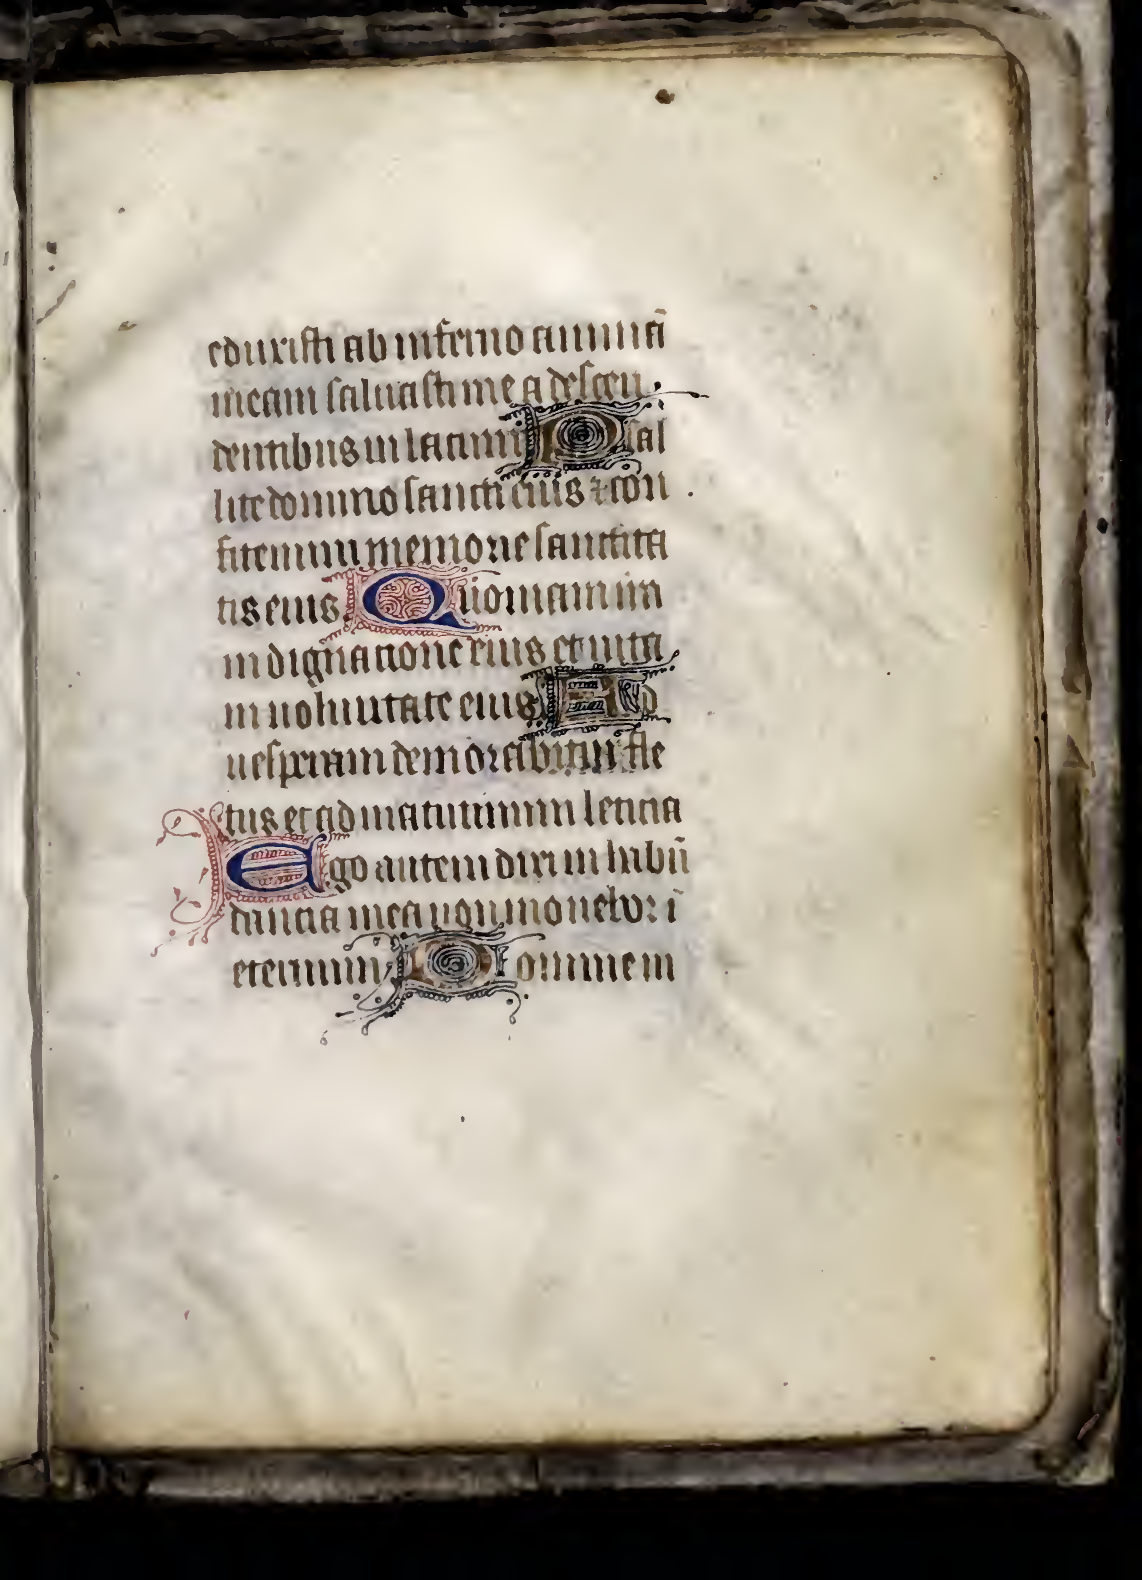 eduxisti ab inferno animā
meam saluasti me a descen
dentibus in lacum Psal
lite domino sancti eius ⁊ con
fitemini memorie sanctita
tis eius Quoniam ira
in dignatione eius et uita
in uoluntate eius Ad
uesperam demorabitur fle
tus et ad matutinum leticia
Ego autem dixi in habū
dancia mea non mouebor ī
eternum Domine in